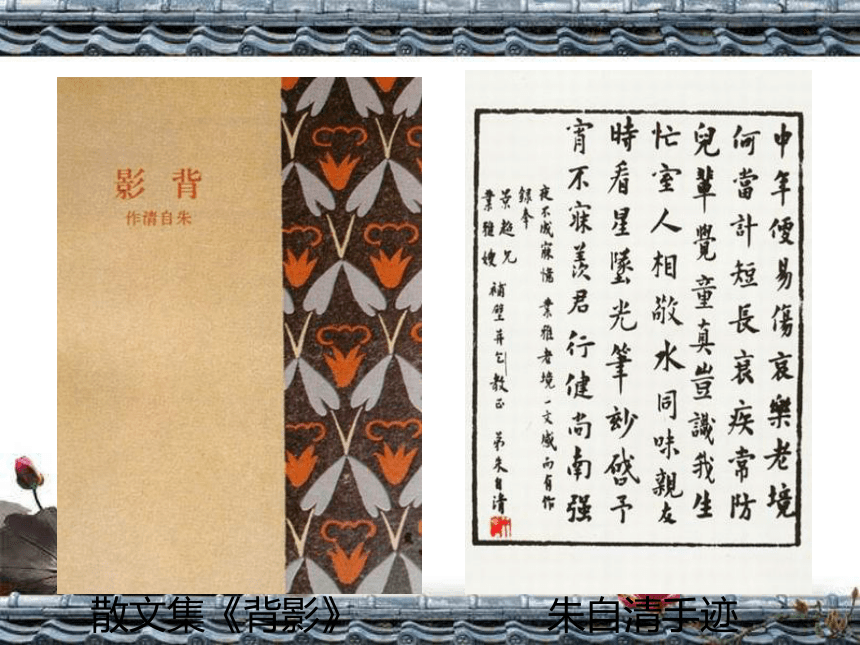 背影
朱自清作
中年便易傷哀樂老境
何當計短長衰疾常防
兒輩覺童真豈識我生
忙室人相敬水同味親友
時看星墜光筆妙啓予
宵不寐羨君行健尚南强
夜不成寐憶業雅老境一文感而有作
錄奉
景超兄
業雅嫂 補壁并乞教正 弟朱自清
散文集《背影》
朱自清手迹